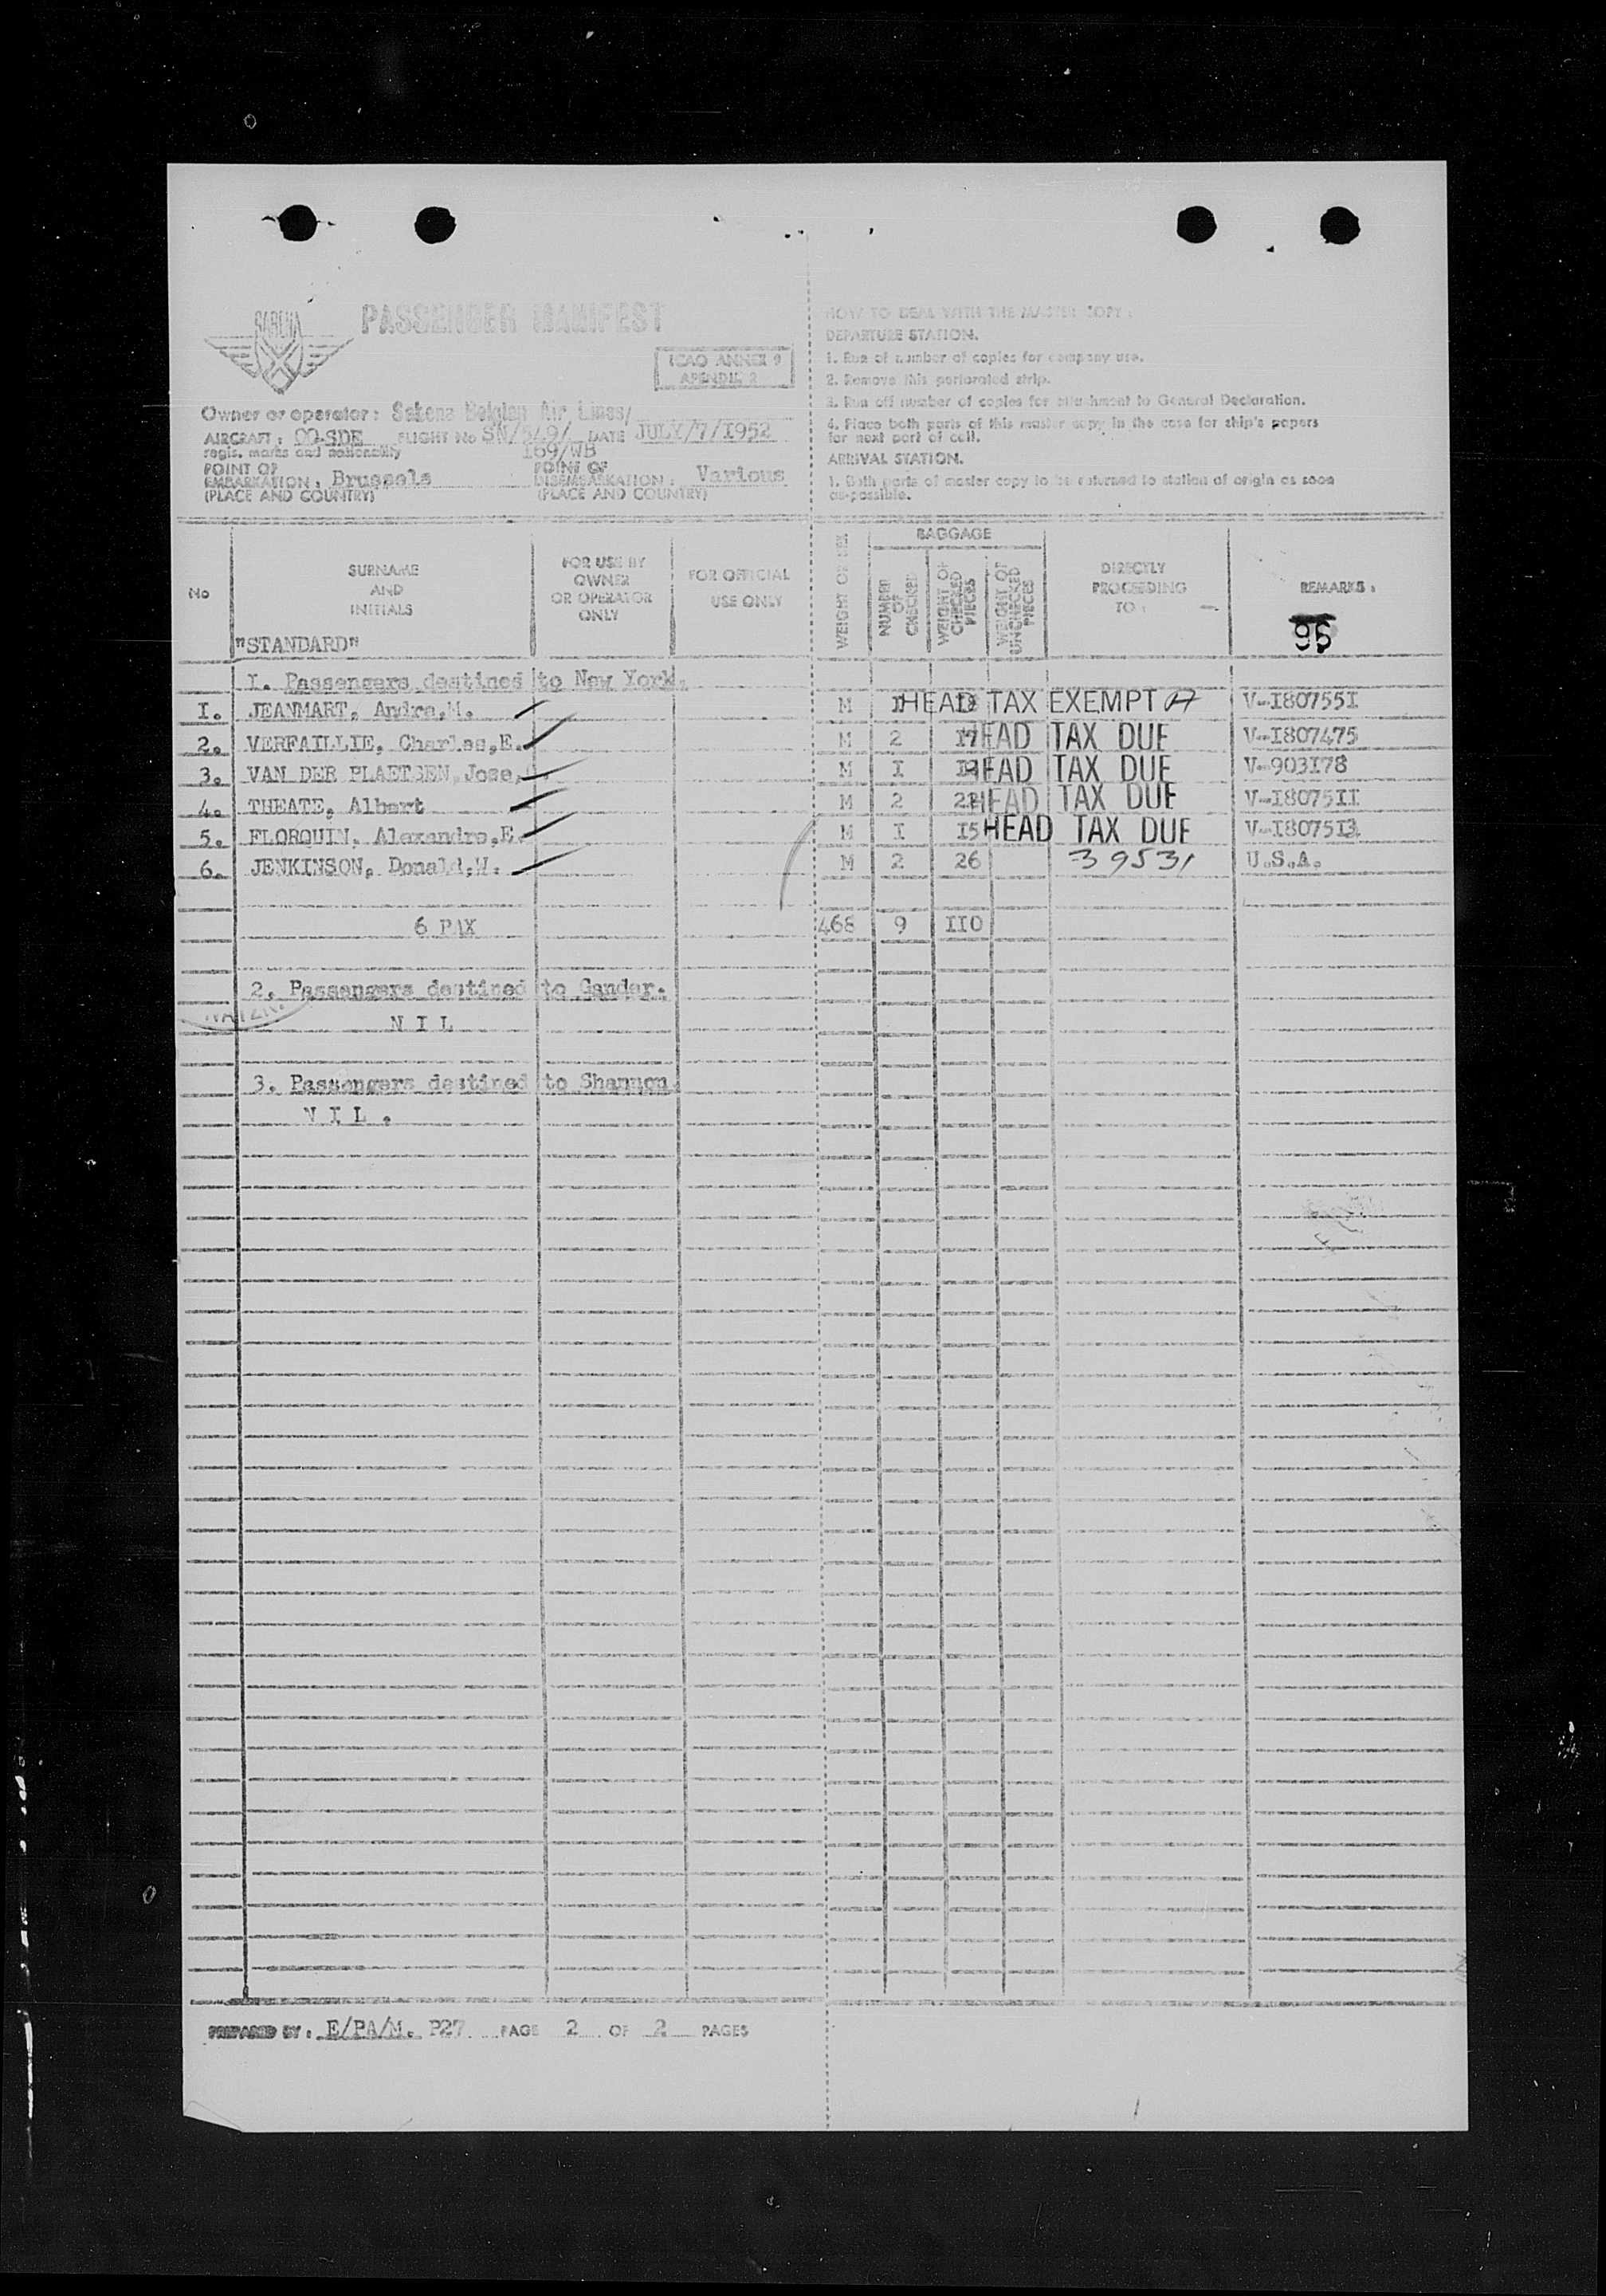 SABENA
PASSENGER MANIFEST
ICAO ANNEX 9
APENDIX 2
Owner or operator: Sabena Belgian Air Lines/
AIRCRAFT: OO-SDE FLIGHT No SN/549/ DATE JULY/7/1952
regis. marks and nationality 169/WB
POINT OF EMBARKATION: Brussels POINT OF DISEMBARKATION: Various
(PLACE AND COUNTRY) (PLACE AND COUNTRY)
HOW TO DEAL WITH THE MASTER COPY:
DEPARTURE STATION.
1. Run of number of copies for company use.
2. Remove this perforated strip.
3. Run off number of copies for attachment to General Declaration.
4. Place both parts of this master copy in the case for ship's papers
for next port of call.
ARRIVAL STATION.
1. Both parts of master copy to be returned to station of origin as soon
as possible.
No SURNAME AND INITIALS FOR USE BY OWNER OR OPERATOR ONLY FOR OFFICIAL USE ONLY WEIGHT OR SEX BAGGAGE NUMBER OF CHECKED WEIGHT OF CHECKED PIECES WEIGHT OF UNCHECKED PIECES DIRECTLY PROCEEDING TO: REMARKS:
"STANDARD" 95
1. Passengers destined to New York.
I. JEANMART, Andre,M. M HEAD TAX EXEMPT V-I80755I
2. VERFAILLIE, Charles,E. M 2 17 HEAD TAX DUE V-I807475
3. VAN DER PLAETSEN, Jose, M I HEAD TAX DUE V-903I78
4. THEATE, Albert M 2 22 HEAD TAX DUE V-I8075II
5. FLORQUIN, Alexandre,E. M I I5 HEAD TAX DUE V-I8075I3
6. JENKINSON, Donald,W. M 2 26 39531 U.S.A.
6 PAX 468 9 II0
2. Passengers destined to Gander.
N I L
3. Passengers destined to Shannon.
N I L .
PREPARED BY: E/PA/M. P27 PAGE 2 OF 2 PAGES